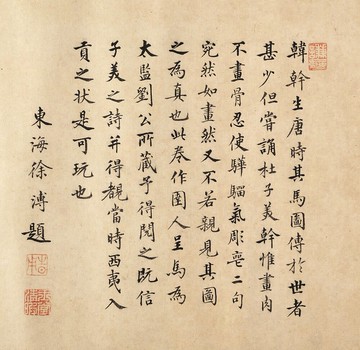 韓幹生唐時其馬圖傳於世者
甚少但嘗誦杜子美幹惟畫肉
不畫骨忍使驊騮氣彫喪二句
宛然如畫然又不若親見其圖
之為真也此卷作圉人呈馬為
太監劉公所藏予得閱之既信
子美之詩并得覩當時西夷入
貢之狀是可玩也
東海徐溥題